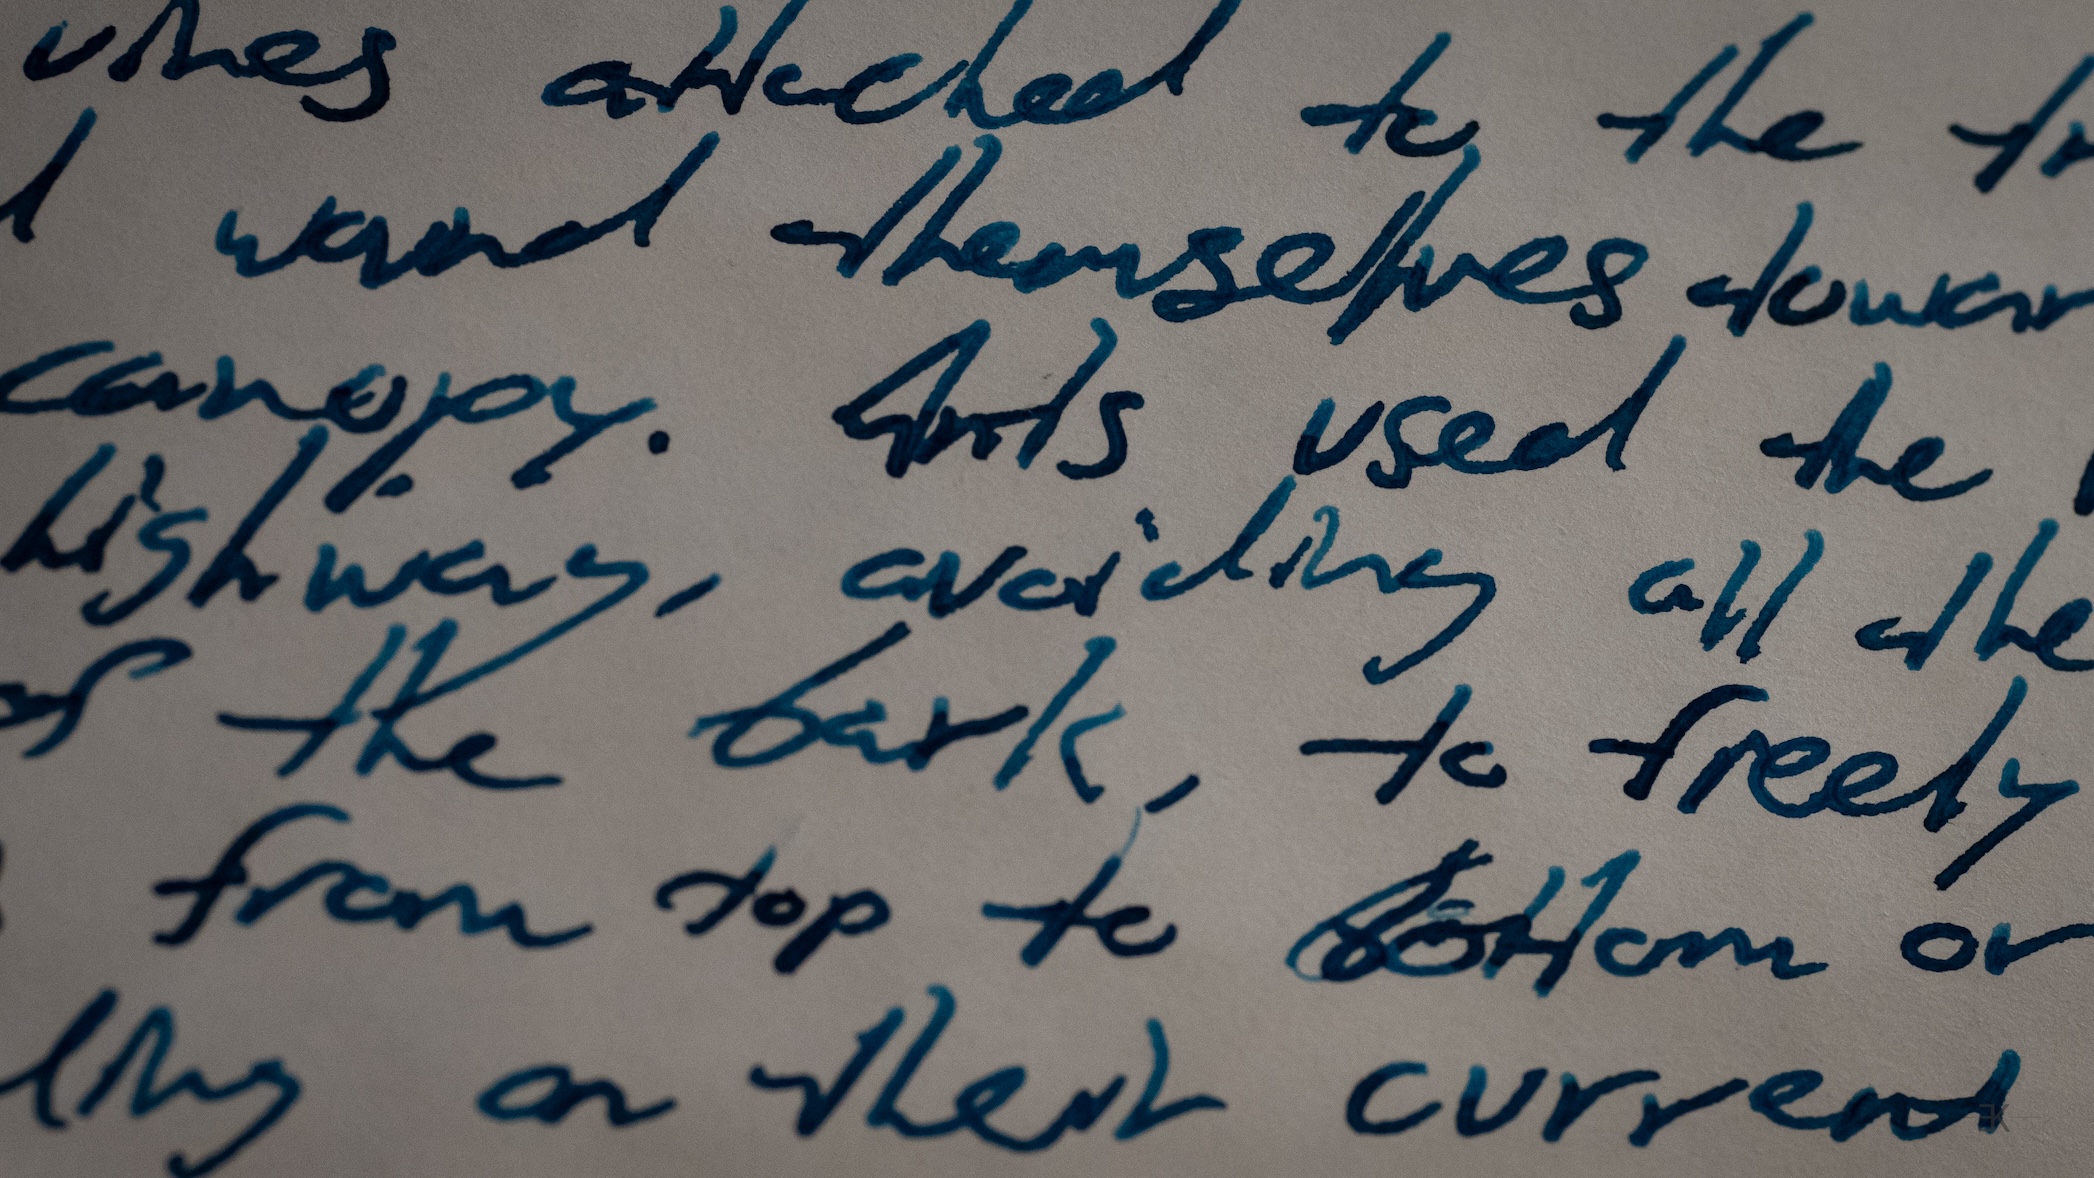 vines attached to the tr
d wound themselves towar
canopy. Ants used the
highway, avoiding all the
of the bark, to freely
from top to bottom or
ling on their current